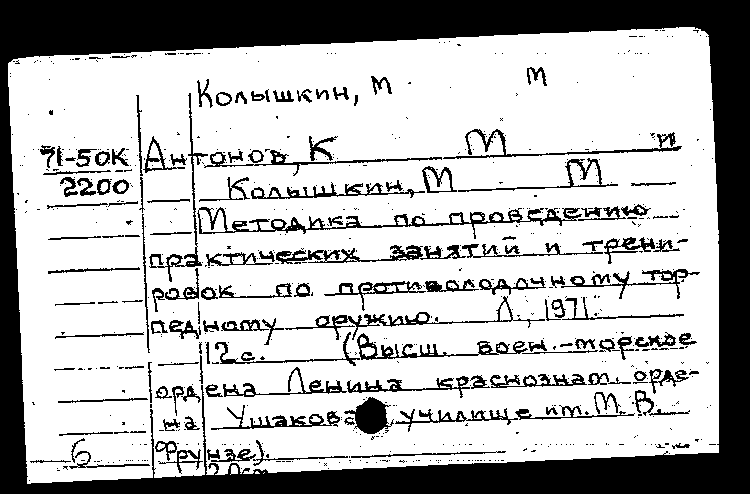 Колышкин, М М
71-50К Антонов, К М и
2200 Колышкин, М М
Методика по проведению
практических занятий и трени-
ровок по противолодочному тор-
педному оружию. Л., 1971.
12 с. (Высш. воен.-морское
ордена Ленина краснознам. орде-
на Ушакова училище им. М. В.
6 Фрунзе).